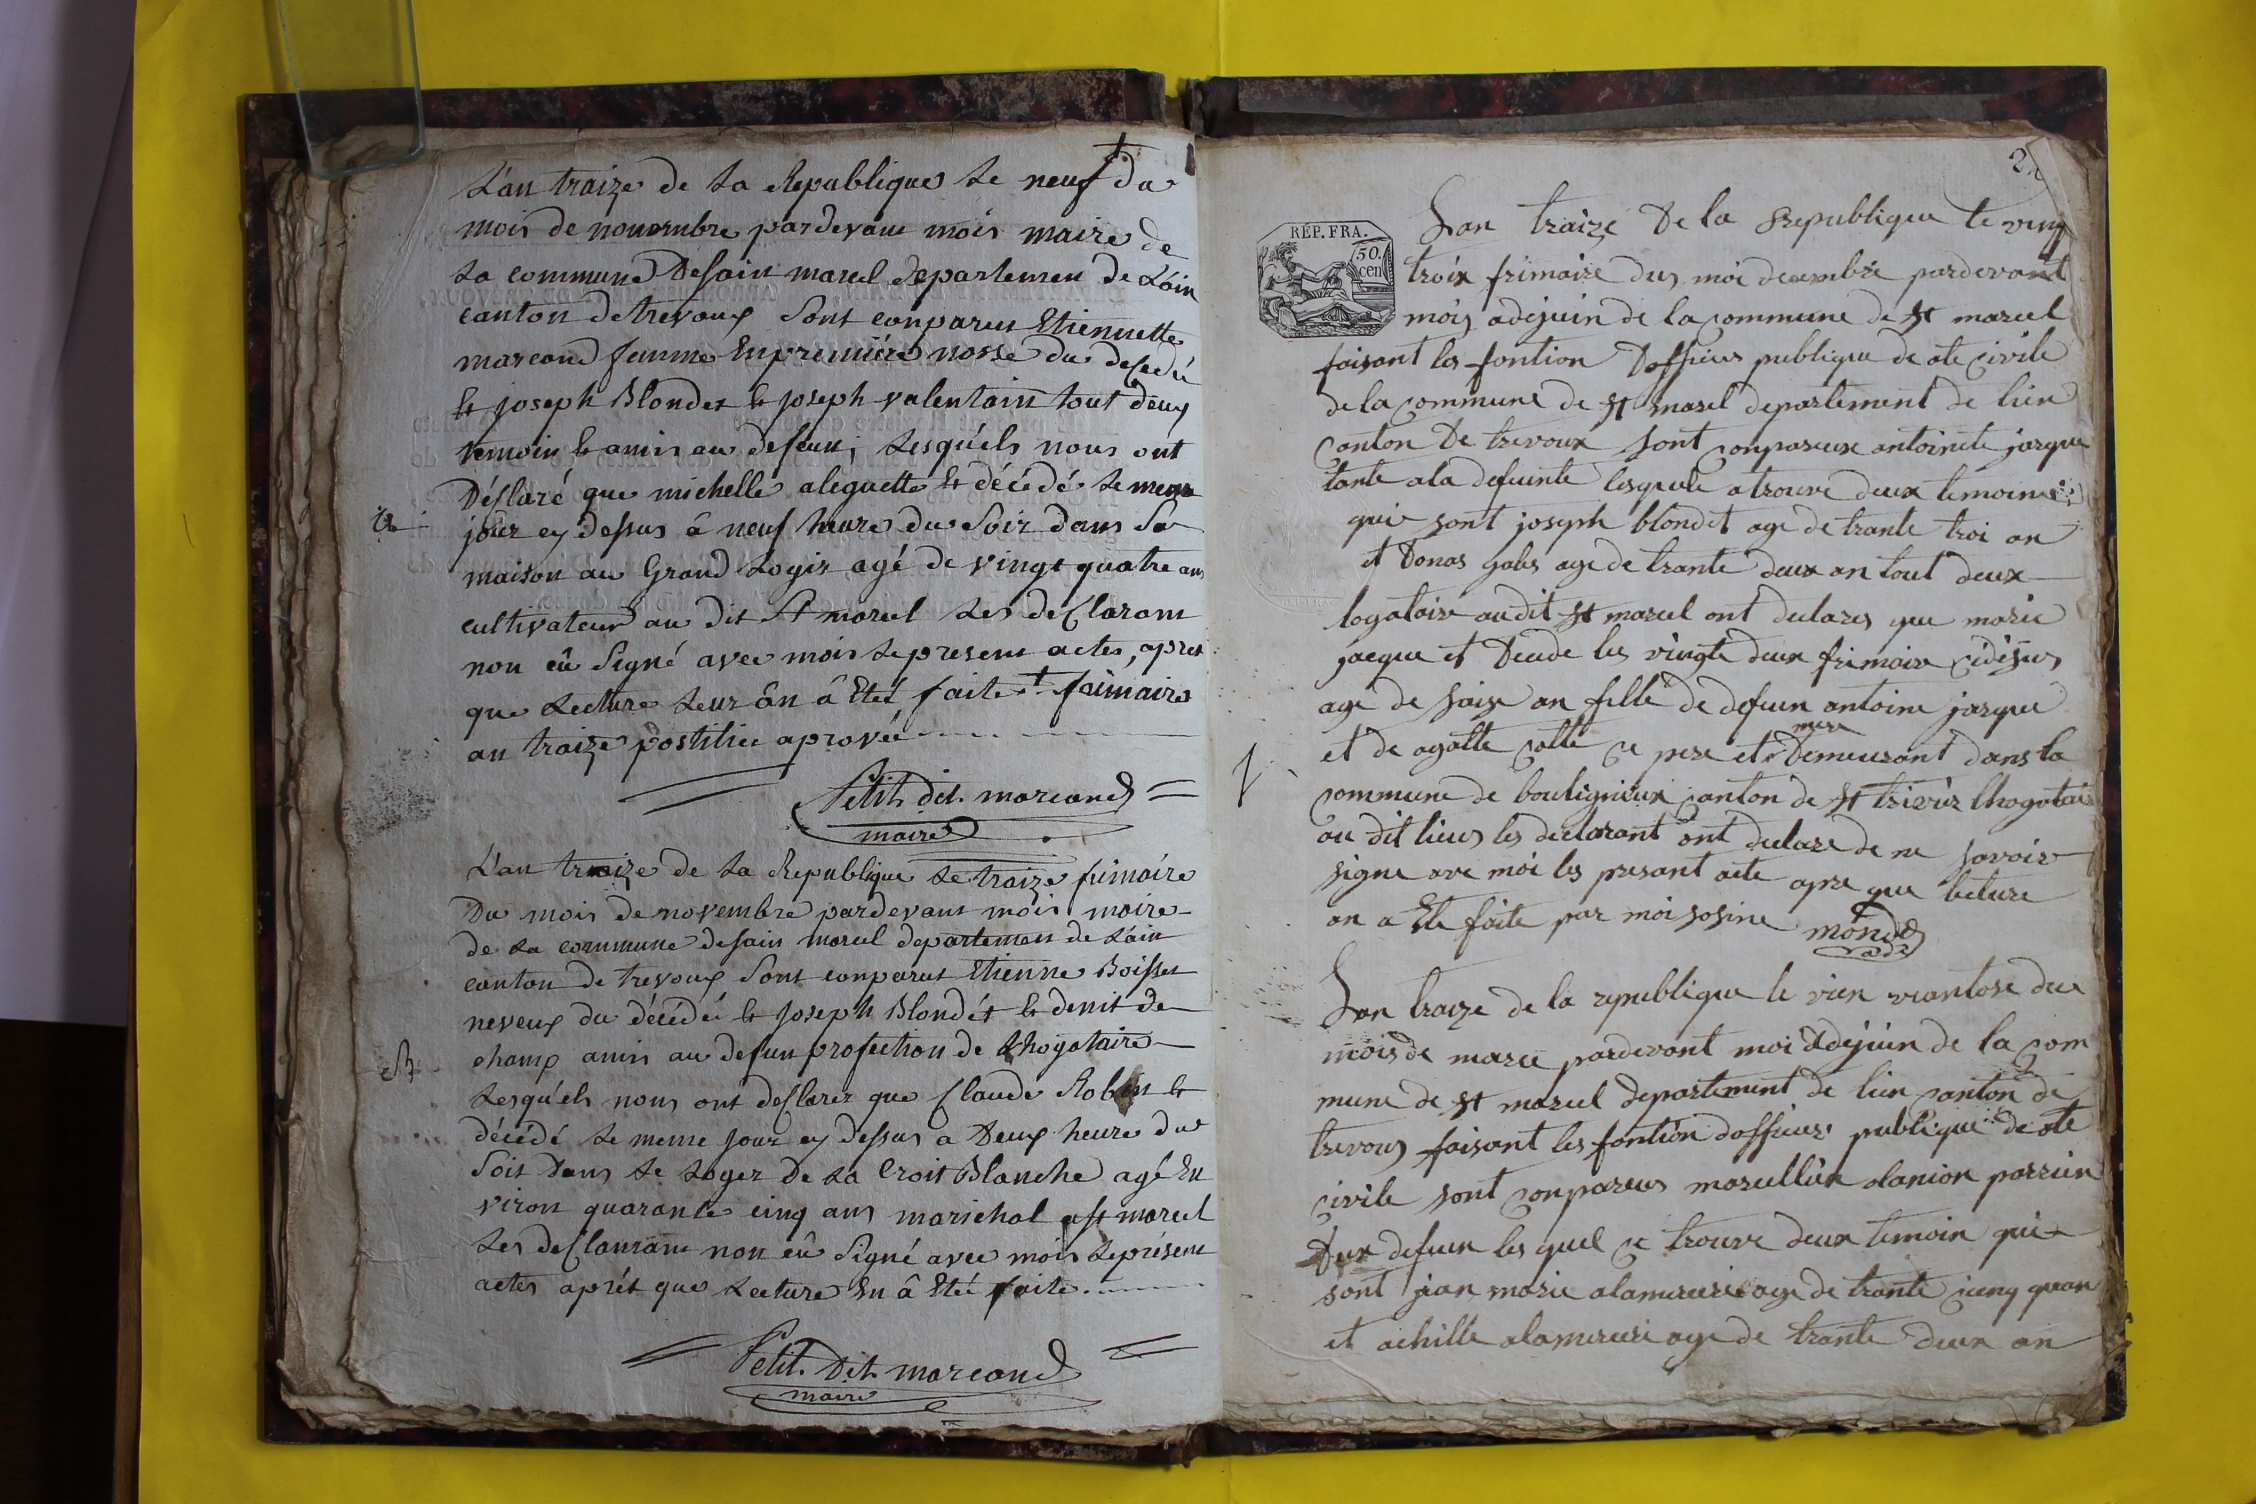 L'an traize de La Republique Le neuf † du
mois de nouvembre pardevant mois maire de
La commune Desain marcel departemen de L'ain
canton de trevoux sont conparut Etiennette
marcand femme En premiére nosse du decedé
et joseph Blondet et joseph valentain tout deux
temoin et amis au defunt; Lesquels nous ont
Déslaré que michelle aleguette et décédé Le meme
jour cy dessus â neuf heure du Soir dans Sa
maison au Grand Logis agé de vingt quatre ans
cultivateur au dit St marcel Les deslarant
non cû Signé avec mois Le present actes, apres
que Lecture Leur ân â Eteé faite † frimaire
an traize postilie aprovée
Petit dit marcand
maire
L'an traize de La Republique Le traize frimaire
Du mois de novembre pardevant mois maire
de La commune desain marcel departemen de L'ain
canton de trevoux Sont conparut Etienne Boisset
neveux du décédé et Joseph Blondét et denit de
champ amis au defun profection de Lhogataire
Lesquéls nous ont deslarez que Claude Robin et
décédé Le meme Jour cy dessus a Deux heure du
Soir Dans Le Loger de La Croit Blanche agé En
viron quarante cinq ans marichal a St marcel
Les deslaurant non cû Signé avec mois Le présent
actes aprét que Lecture En â Eteé faite
Petit Dit marcand
maire
2
RÉP. FRA.
50.
cen
Lan traize De la Republique le ving
troix frimaire dus moi decembre pardevant
mois adejuin de la commune de St marcel
faisant les fontion Dofficier publique de ate civile
de la commune de St marcel departement de lien
canton De trevoux sont conpareux antoinete jacque
tante a la defuinte lesquele a trouve deux temoins
qui sont joseph blondet age de trante troi an
et Donas gabs age de trante deux an tout deux
logataire au dit St marcel ont declares que marie
jacque et Decede les vingte deux frimaire cidesus
age de saize an fille de defuin antoine jacque
et de agatte catte ce pere et mere Demeurant dans la
commune de boulignieux canton de St trivier lhogatair
au dit lieus les declarant ont declare de ne savoir
signe ave moi les presant acte apre que lecture
an a Ete faite par moi sosine mondé
adj
Lan traize de la republique le vien vantose du
mois de marce pardevant moi Adejuin de la com
mune de St marcel departement de lien canton de
trevous faisant les fontion dofficier publique de ate
civile sont conpareus marcellin alanion parrien
Dux defuen les quel ce trouve deux temoin qui
sont jean marie alamercerie age de trante cienq quan
et achille alamercerie age de trante deux an